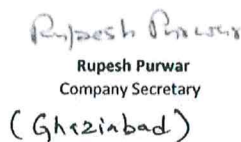 Rupesh Purwar
Rupesh Purwar
Company Secretary
(Ghaziabad)